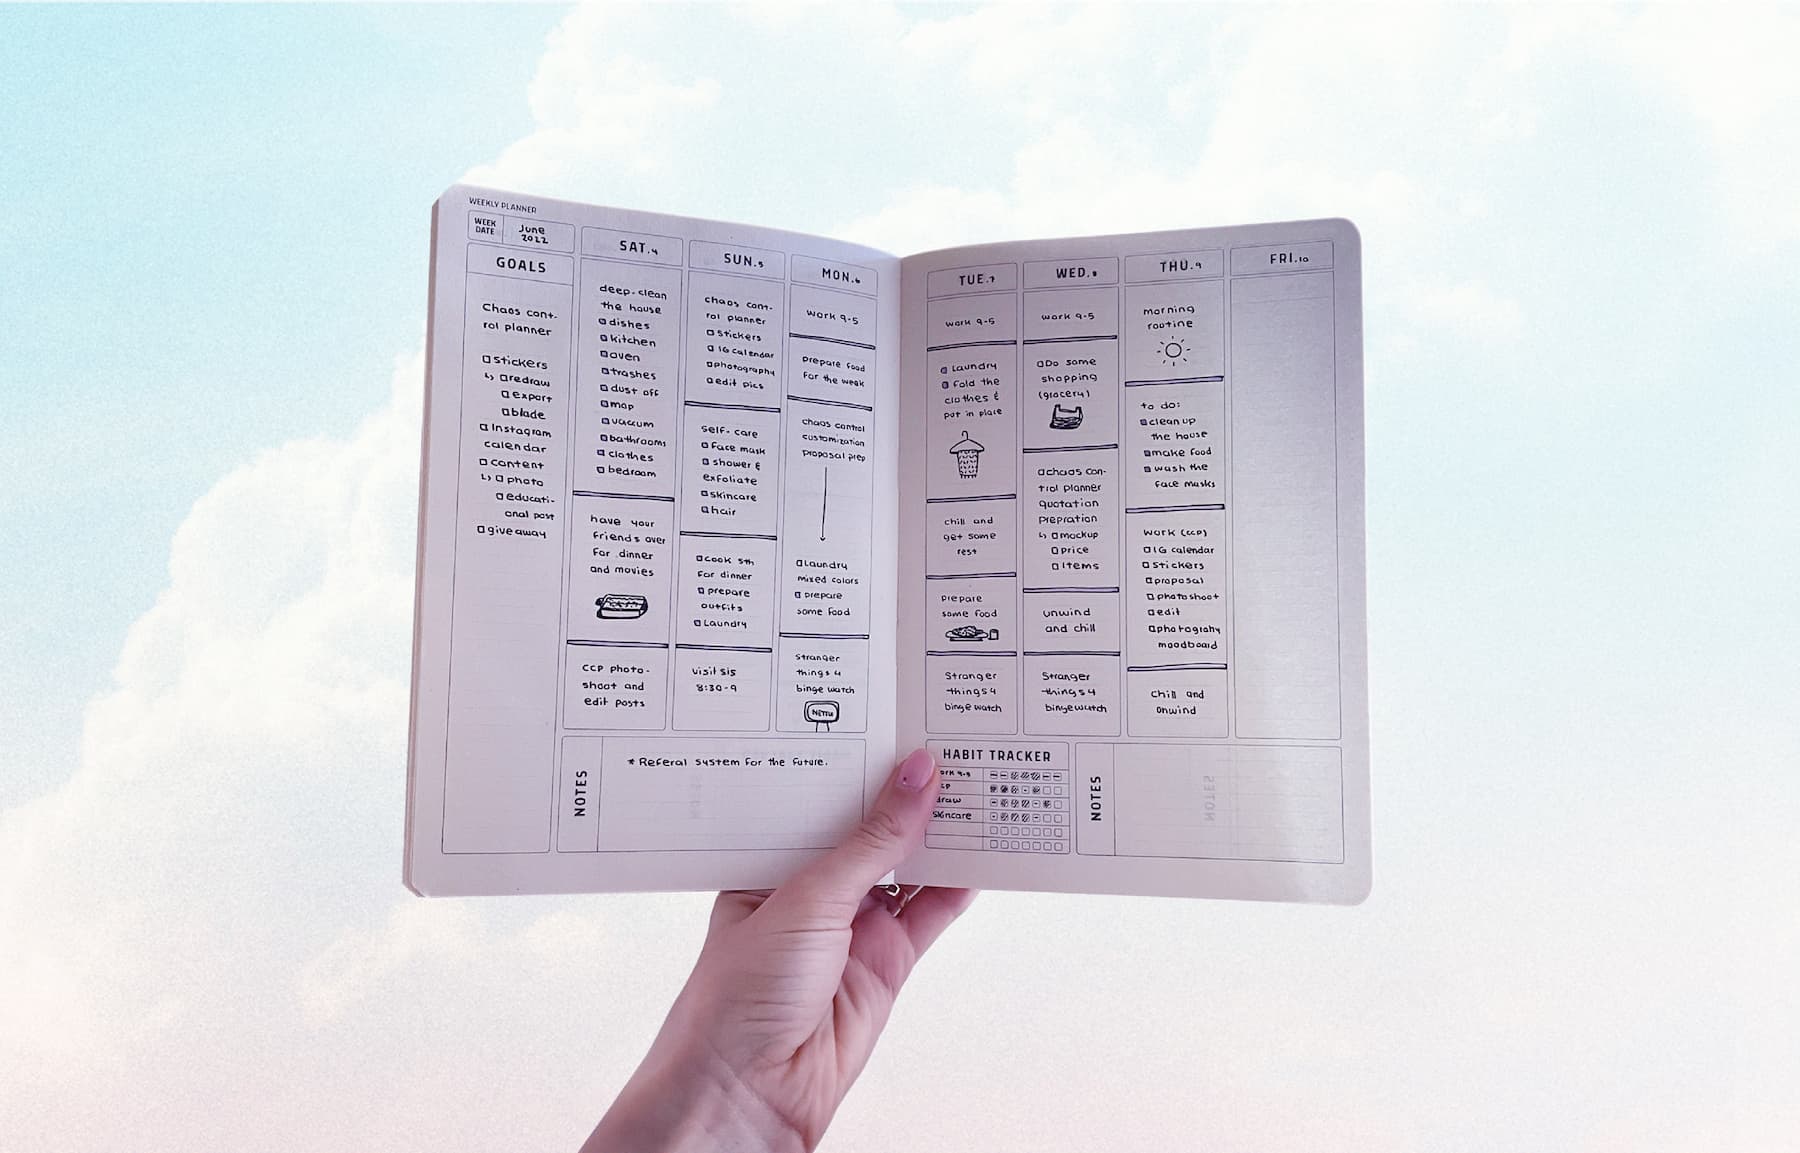 WEEKLY PLANNER
WEEK
DATE
June
2022
GOALS
Chaos cont-
rol planner
stickers
↳ redraw
export
blade
Instagram
calendar
content
↳ photo
educati-
onal post
giveaway
SAT.4
deep-clean
the house
dishes
kitchen
oven
trashes
dust off
mop
vaccum
bathrooms
clothes
bedroom
have your
friends over
for dinner
and movies
CCP photo-
shoot and
edit posts
SUN.5
chaos cont-
rol planner
stickers
IG calendar
photography
edit pics
self-care
face mask
shower &
exfoliate
skincare
hair
cook sth
for dinner
prepare
outfits
Laundry
visit sis
8:30-9
MON.6
work 9-5
Prepare food
for the weak
chaos control
customization
proposal prep
Laundry
mixed colors
prepare
some food
Stranger
things 4
binge watch
NOTES
* Referal system for the future.
TUE.7
work 9-5
Laundry
fold the
clothes &
put in place
chill and
get some
rest
prepare
some food
Stranger
things4
binge watch
WED.8
work 9-5
Do some
shopping
(grocery)
chaos con-
trol planner
quotation
prepration
↳ mockup
price
items
unwind
and chill
Stranger
things4
bingewatch
THU.9
morning
routine
to do:
clean up
the house
make food
wash the
face masks
work (ccp)
IG calendar
stickers
proposal
photoshoot
edit
photograhy
moodboard
chill and
unwind
FRI.10
HABIT TRACKER
skincare
NOTES